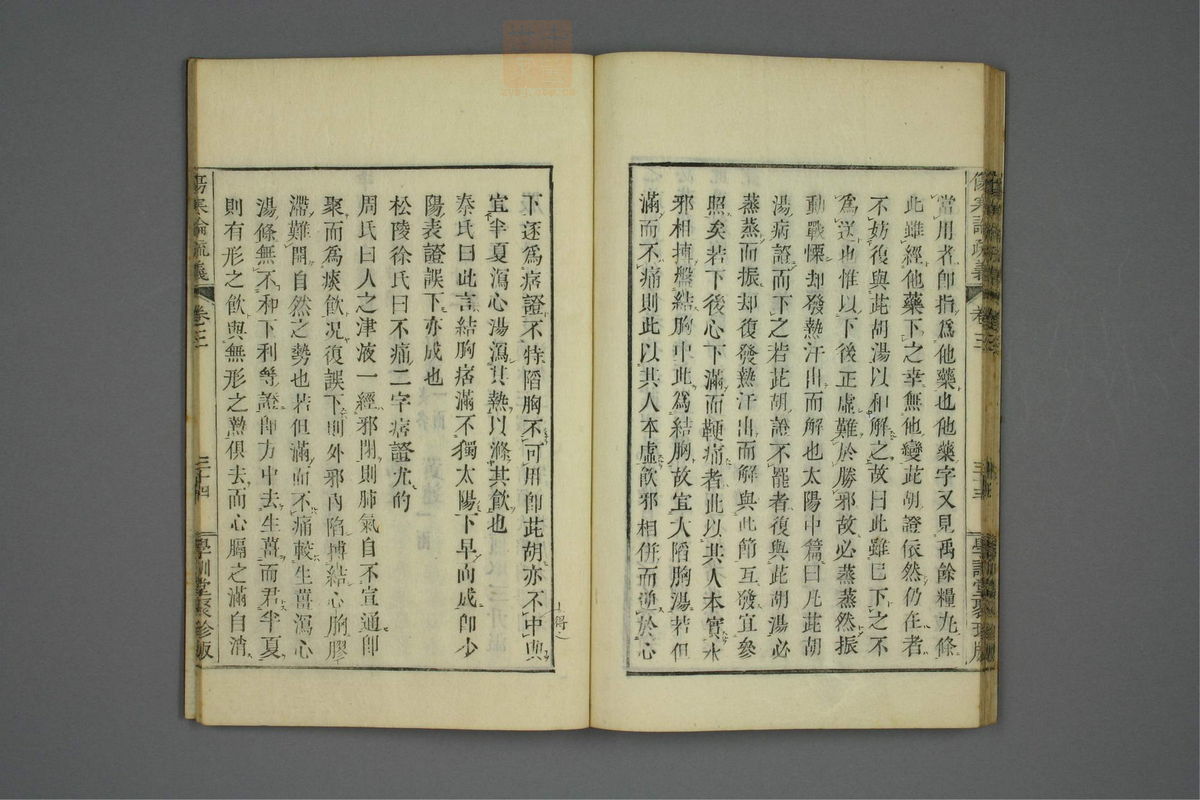 當用者卽指爲他藥也他藥字又見禹餘糧丸條
此雖經他藥下之幸無他變茈胡證依然仍在者
不妨復與茈胡湯以和解之故曰此雖已下之不
爲逆也惟以下後正虛難於勝邪故必蒸蒸然振
動戰慄却發熱汗出而解也太陽中篇曰凡茈胡
湯病證而下之若茈胡證不罷者復與茈胡湯必
蒸蒸而振却復發熱汗出而解與此節互發宜參
照矣若下後心下滿而鞕痛者此以其人本實水
邪相搏盤結胸中此爲結胸故宜大陷胸湯若但
滿而不痛則此以其人本虛飮邪相併而逆於心
傷寒論疏義 卷三 三十三 學訓堂聚珍版
下遂爲痞證不特陷胸不可用卽茈胡亦不中與
宜半夏瀉心湯瀉其熱以滌其飮也
秦氏曰此言結胸痞滿不獨太陽下早而成卽少
陽表證誤下亦成也
松陵徐氏曰不痛二字痞證尤的
周氏曰人之津液一經邪閉則肺氣自不宣通卽
聚而爲痰飮况復誤下則外邪內陷搏結心胸膠
滯難開自然之勢也若但滿而不痛較生薑瀉心
湯條無不和下利等證卽方中去生薑而君半夏
則有形之飮與無形之熱俱去而心膈之滿自消
傷寒論疏義 卷三 三十四 學訓堂聚珍版